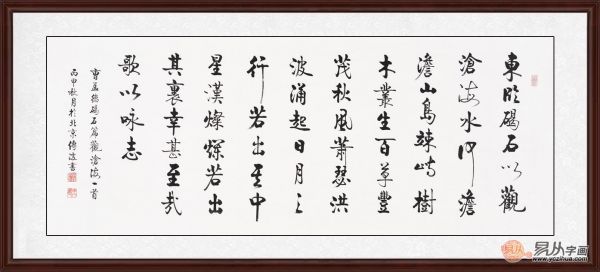 東臨碣石以觀
滄海水何澹
澹山島竦峙樹
木叢生百草豐
茂秋風蕭瑟洪
波涌起日月之
行若出其中
星漢燦爛若出
其裏幸甚至哉
歌以咏志
曹孟德碣石篇觀滄海一首
丙申秋月於北京傳波書
易从字画
www.yczihua.com